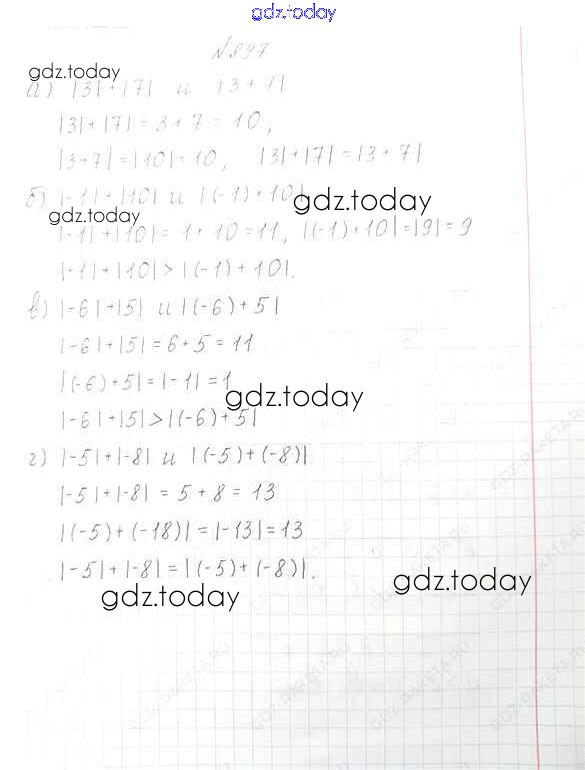 gdz.today
№897
gdz.today
а) |3|+|7| и |3+7|
|3|+|7|=3+7=10,
|3+7|=|10|=10, |3|+|7|=|3+7|
б) |-1|+|10| и |(-1)+10|
gdz.today
gdz.today
|-1|+|10|=1+10=11, |(-1)+10|=|9|=9
|-1|+|10|>|(-1)+10|.
в) |-6|+|5| и |(-6)+5|
|-6|+|5|=6+5=11
|(-6)+5|=|-1|=1
gdz.today
|-6|+|5|>|(-6)+5|
г) |-5|+|-8| и |(-5)+(-8)|
|-5|+|-8|=5+8=13
|(-5)+(-18)|=|-13|=13
|-5|+|-8|=|(-5)+(-8)|.
gdz.today
gdz.today